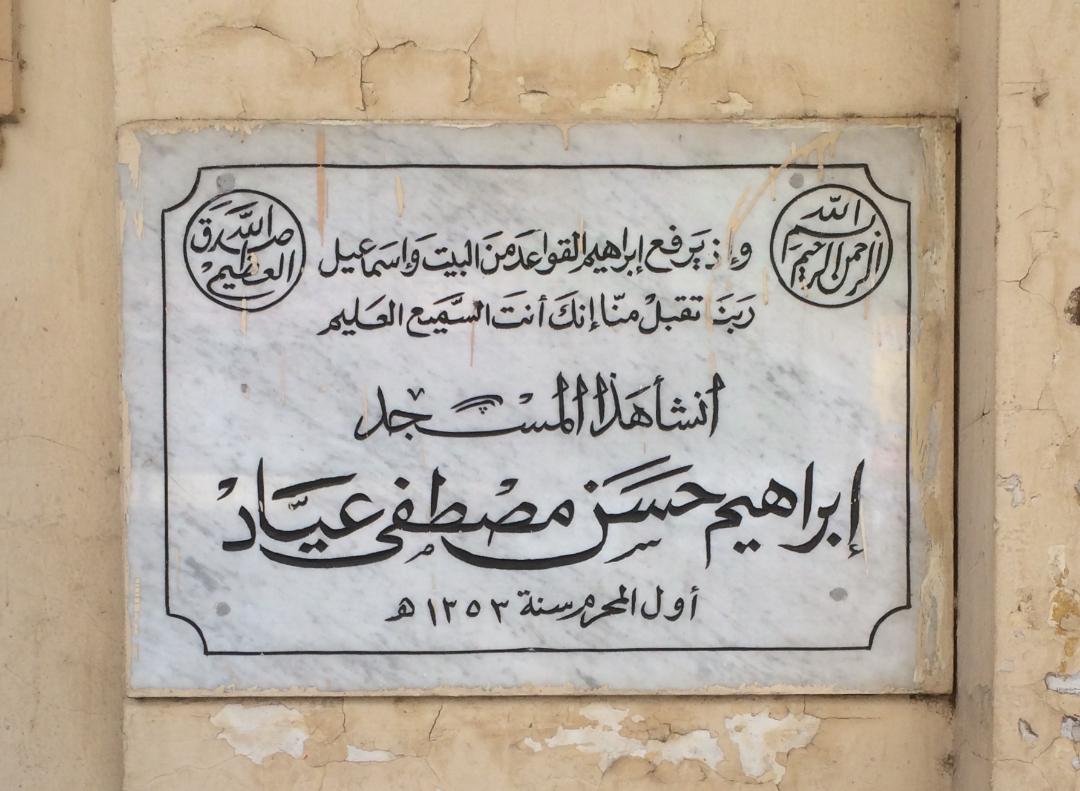 بسم الله الرحمن الرحيم
وإذ يرفع إبراهيم القواعد من البيت وإسماعيل
ربنا تقبل منا إنك أنت السميع العليم
صدق الله العظيم
أنشأ هذا المسجد
إبراهيم حسن مصطفى عياد
أول المحرم سنة ١٣٥٣ هـ